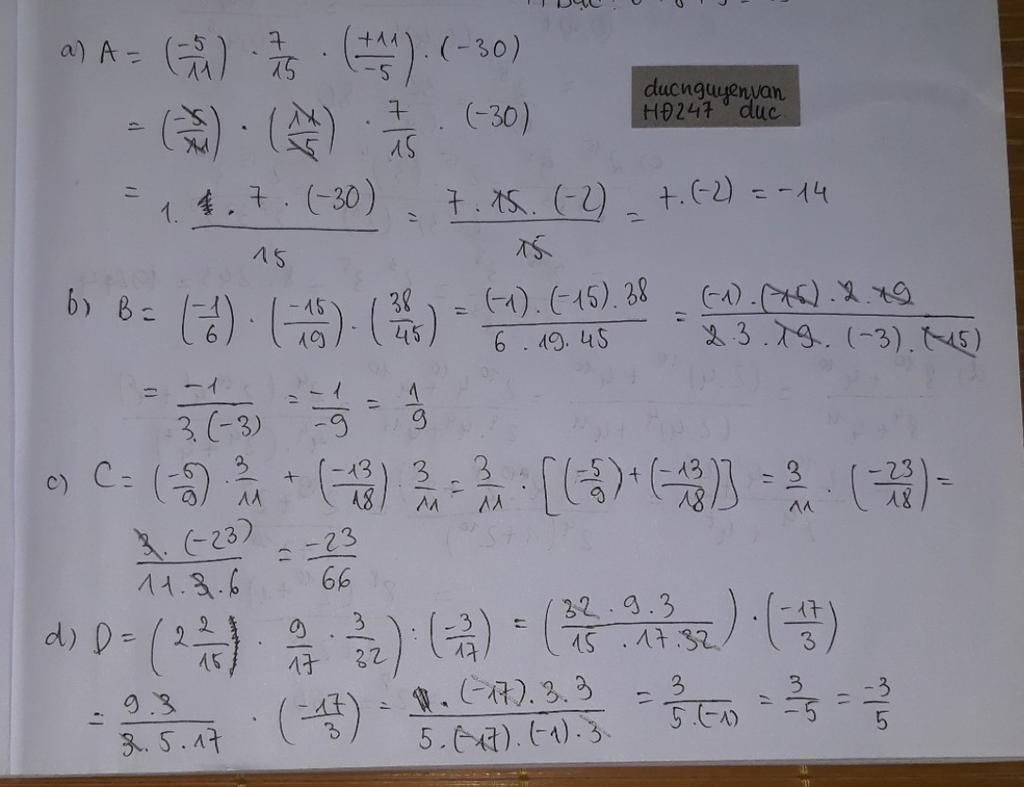 a) A = (-5/11) · 7/15 · (+11/-5) · (-30)
ducnguyenvan
HĐ247 duc
= (-5/11) · (11/-5) · 7/15 · (-30)
= 1 · 1 · 7 · (-30) / 15 = 7 · 15 · (-2) / 15 = 7 · (-2) = -14
b) B = (-1/6) · (-15/19) · (38/45) = (-1) · (-15) · 38 / 6 · 19 · 45 = (-1) · (-15) · 2 · 19 / 2 · 3 · 19 · (-3) · (-15)
= -1 / 3 · (-3) = -1/-9 = 1/9
c) C = (-5/9) · 3/11 + (-13/18) · 3/11 = 3/11 · [(-5/9) + (-13/18)] = 3/11 · (-23/18) =
3 · (-23) / 11 · 3 · 6 = -23/66
d) D = (2 2/15 · 9/17 · 3/32) : (-3/17) = (32 · 9 · 3 / 15 · 17 · 32) · (-17/3)
= 9 · 3 / 3 · 5 · 17 · (-17/3) = · (-17) · 3 · 3 / 5 · (-17) · (-1) · 3 = 3 / 5 · (-1) = 3/-5 = -3/5